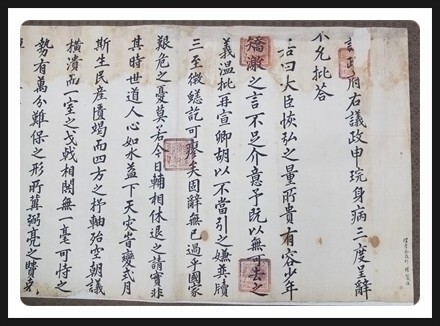 議政府右議政申琓身病三度呈辭
不允批答
曰大臣恢弘之量所貴有容少年
矯激之言不足介意予既以無可去之
義溫批再宣卿胡以不當引之嫌牘
三至微訖可矣固辭無已過乎國家
艱危之憂莫若今日輔相休退之請實非
其時世道人心如水益下天灾變式月
斯生民產匱竭而四方之杼軸殆空朝議
橫潰而一室之戈戟相鬩無一毫可恃之
勢有萬分難保之形所冀弼亮之贊